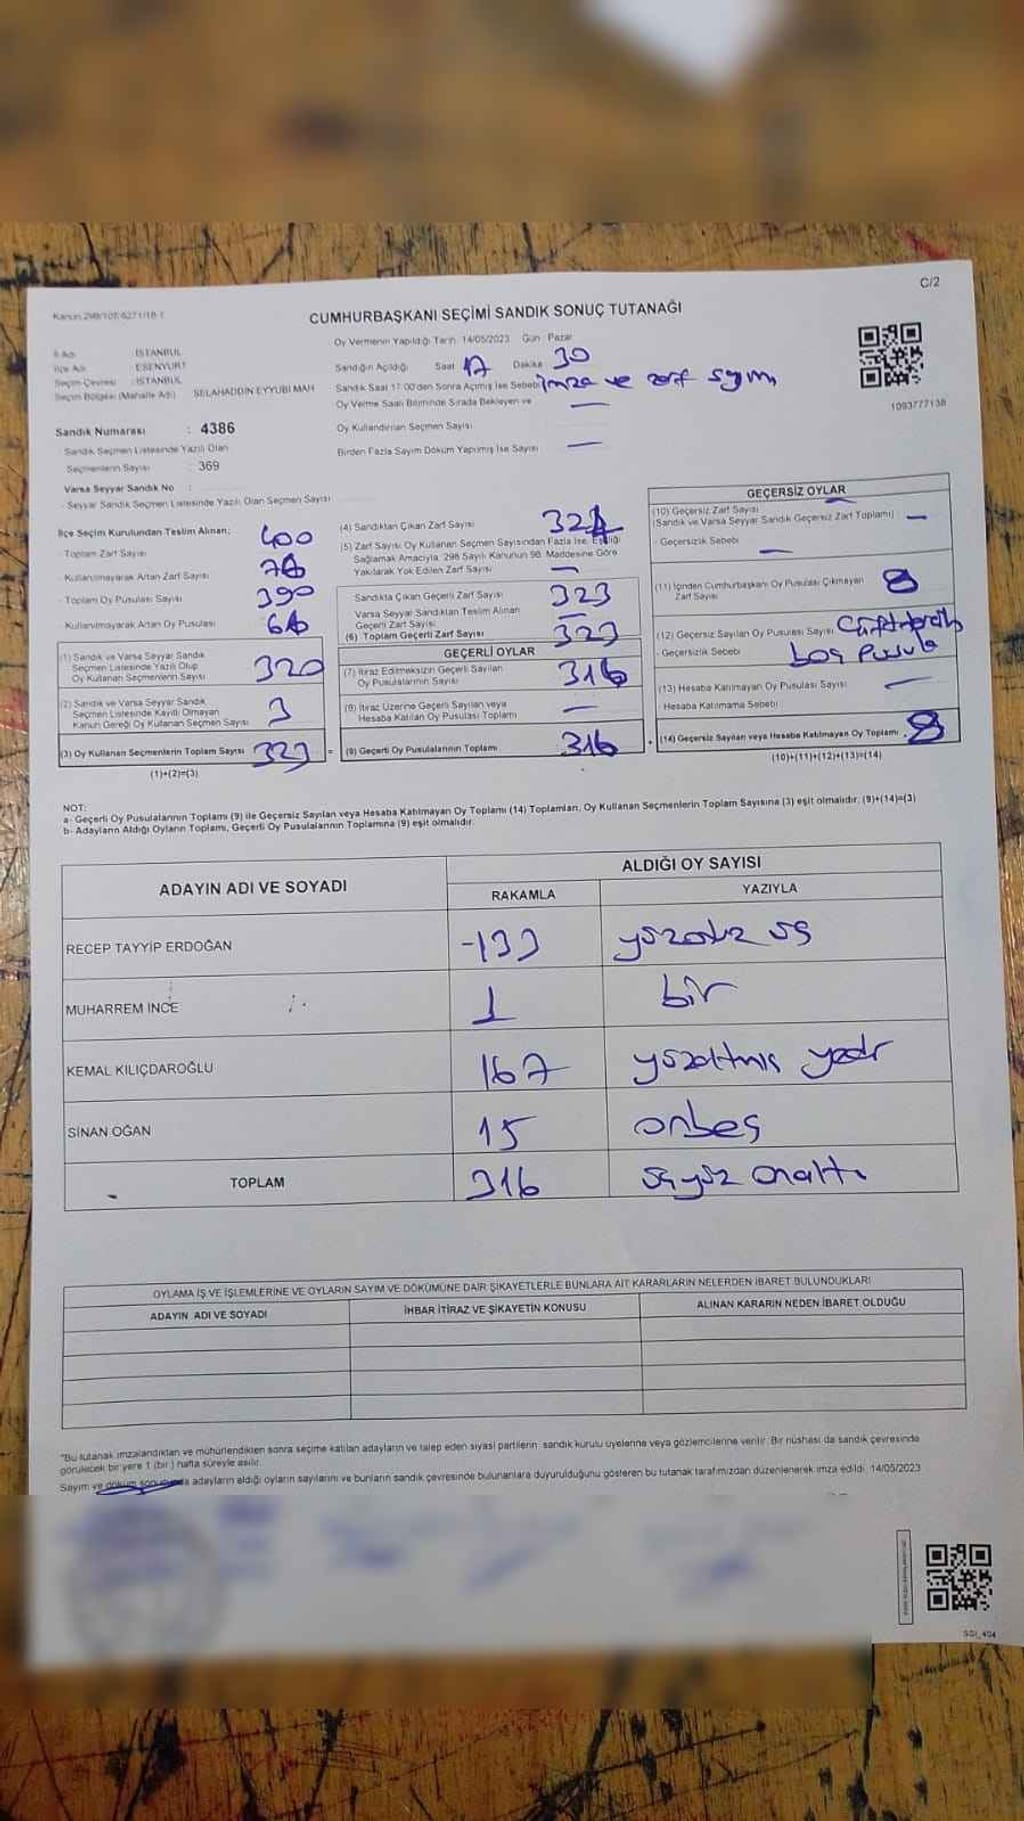 C/2
Kanun:298/107,6271/18-1
CUMHURBAŞKANI SEÇİMİ SANDIK SONUÇ TUTANAĞI
Oy Vermenin Yapıldığı Tarih: 14/05/2023 Gün : Pazar
İl Adı : İSTANBUL
İlçe Adı : ESENYURT
Seçim Çevresi : İSTANBUL
Seçim Bölgesi (Mahalle Adı) : SELAHADDİN EYYUBİ MAH
Sandığın Açıldığı Saat 17 Dakika 30
Sandık Saat 17:00'den Sonra Açılmış İse Sebebi imza ve zarf sayımı
Oy Verme Saati Bitiminde Sırada Bekleyen ve —
Oy Kullandırılan Seçmen Sayısı
Birden Fazla Sayım Döküm Yapılmış İse Sayısı —
1093777138
Sandık Numarası : 4386
Sandık Seçmen Listesinde Yazılı Olan
Seçmenlerin Sayısı : 369
Varsa Seyyar Sandık No :
- Seyyar Sandık Seçmen Listesinde Yazılı Olan Seçmen Sayısı :
İlçe Seçim Kurulundan Teslim Alınan;
- Toplam Zarf Sayısı 400
- Kullanılmayarak Artan Zarf Sayısı
- Toplam Oy Pusulası Sayısı 390
- Kullanılmayarak Artan Oy Pusulası
(1) Sandık ve Varsa Seyyar Sandık
Seçmen Listesinde Yazılı Olup
Oy Kullanan Seçmenlerin Sayısı 320
(2) Sandık ve Varsa Seyyar Sandık
Seçmen Listesinde Kayıtlı Olmayan
Kanun Gereği Oy Kullanan Seçmen Sayısı 3
(3) Oy Kullanan Seçmenlerin Toplam Sayısı 323 =
(1)+(2)=(3)
(4) Sandıktan Çıkan Zarf Sayısı
(5) Zarf Sayısı Oy Kullanan Seçmen Sayısından Fazla İse, Eşitliği
Sağlamak Amacıyla, 298 Sayılı Kanunun 98. Maddesine Göre
Yakılarak Yok Edilen Zarf Sayısı —
Sandıkta Çıkan Geçerli Zarf Sayısı 323
Varsa Seyyar Sandıktan Teslim Alınan
Geçerli Zarf Sayısı —
(6) Toplam Geçerli Zarf Sayısı 323
GEÇERLİ OYLAR
(7) İtiraz Edilmeksizin Geçerli Sayılan
Oy Pusulalarının Sayısı 316
(8) İtiraz Üzerine Geçerli Sayılan veya
Hesaba Katılan Oy Pusulası Toplamı —
(9) Geçerli Oy Pusulalarının Toplamı 316 +
GEÇERSİZ OYLAR
(10) Geçersiz Zarf Sayısı
(Sandık ve Varsa Seyyar Sandık Geçersiz Zarf Toplamı) —
- Geçersizlik Sebebi —
(11) İçinden Cumhurbaşkanı Oy Pusulası Çıkmayan
Zarf Sayısı 8
(12) Geçersiz Sayılan Oy Pusulası Sayısı
- Geçersizlik Sebebi boş pusula
(13) Hesaba Katılmayan Oy Pusulası Sayısı —
- Hesaba Katılmama Sebebi
(14) Geçersiz Sayılan veya Hesaba Katılmayan Oy Toplamı 8
(10)+(11)+(12)+(13)=(14)
NOT:
a- Geçerli Oy Pusulalarının Toplamı (9) ile Geçersiz Sayılan veya Hesaba Katılmayan Oy Toplamı (14) Toplamları, Oy Kullanan Seçmenlerin Toplam Sayısına (3) eşit olmalıdır. (9)+(14)=(3)
b- Adayların Aldığı Oyların Toplamı, Geçerli Oy Pusulalarının Toplamına (9) eşit olmalıdır.
ADAYIN ADI VE SOYADI
ALDIĞI OY SAYISI
RAKAMLA YAZIYLA
RECEP TAYYİP ERDOĞAN -133 yüzotuz üç
MUHARREM İNCE 1 bir
KEMAL KILIÇDAROĞLU 167 yüzaltmış yedi
SİNAN OĞAN 15 onbeş
TOPLAM 316 üçyüz onaltı
OYLAMA İŞ VE İŞLEMLERİNE VE OYLARIN SAYIM VE DÖKÜMÜNE DAİR ŞİKAYETLERLE BUNLARA AİT KARARLARIN NELERDEN İBARET BULUNDUKLARI
ADAYIN ADI VE SOYADI İHBAR İTİRAZ VE ŞİKAYETİN KONUSU ALINAN KARARIN NEDEN İBARET OLDUĞU
"Bu tutanak imzalandıktan ve mühürlendikten sonra seçime katılan adayların ve talep eden siyasi partilerin sandık kurulu üyelerine veya gözlemcilerine verilir. Bir nüshası da sandık çevresinde
görülecek bir yere 1 (bir) hafta süreyle asılır.
Sayım ve döküm sonucunda adayların aldığı oyların sayılarını ve bunların sandık çevresinde bulunanlara duyurulduğunu gösteren bu tutanak tarafımızdan düzenlenerek imza edildi. 14/05/2023